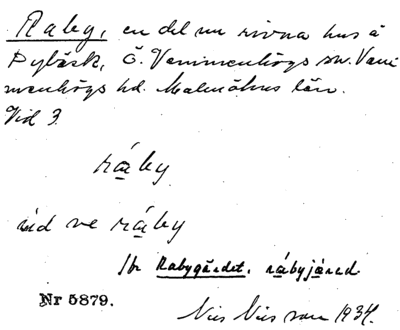 Raby, en del nu rivna hus å
Dybäck, Ö. Vemmenhögs sn. Vem
menhögs hd. Malmöhus län.
Vid 3.
råby
ve råby
Jbr Rabygärdet, råbyjärad
Nr 5879.
Nils Nilsson 1934.